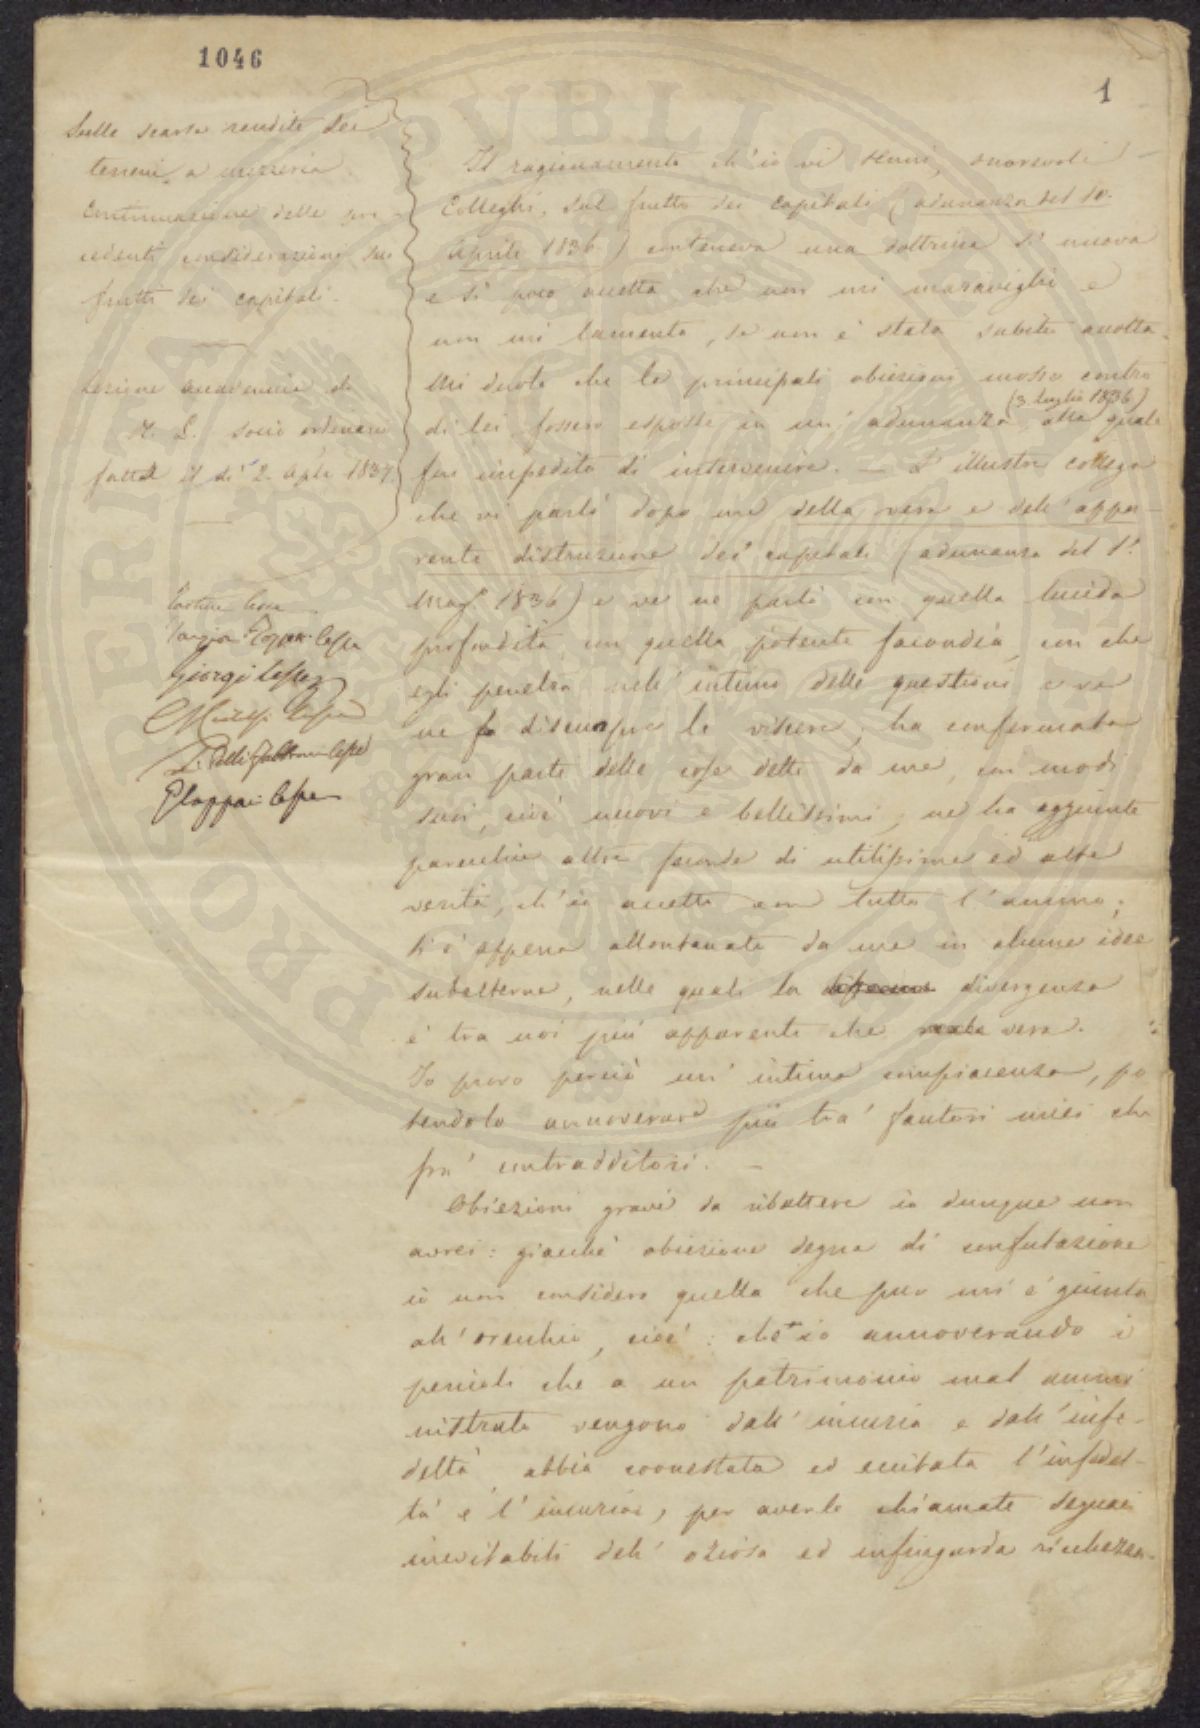 1046
1
Sulle scarse rendite dei
terreni a mezzeria
Continuazione delle pre-
cedenti considerazioni sui
frutti dei capitali.
Lezione accademica di
socio ordinario
fatta il dì 2. Aple 1837.
Giorgi
Il ragionamento ch'io vi tenni, onorevoli
Colleghi, sul frutto dei capitali (adunanza del 10.
Aprile 1836.) conteneva una dottrina sì nuova
e sì poco accetta che non mi maraviglio e
non mi lamento, se non è stata subito accolta.
Mi duole che le principali obiezioni mosse contro
(3 luglio 1836)
di lei fossero esposte in un' adunanza, alla quale
fui impedito di intervenire. — L'illustre collega
che vi parlò dopo me della vera e dell'appa-
rente distruzione dei capitali (adunanza del 1°.
Mag. 1836) e ve ne parlò con quella lucida
profondità, con quella potente facondia, con che
egli penetra nell'intimo delle questioni e
ne fa discuoprire le viscere, ha confermata
gran parte delle cose dette da me, con modi
suoi, cioè nuovi e bellissimi; ne ha aggiunte
parecchie altre feconde di utilissime ed alte
verità, ch'io accetto con tutto l'animo;
s'è appena allontanato da me in alcune idee
subalterne, nelle quali la divergenza
è tra noi più apparente che vera.
Io provo perciò un' intima compiacenza, po
tendolo annoverare più tra' fautori miei che
fra' contraddittori. —
Obiezioni gravi da ribattere io dunque non
avrei: giacchè obiezione degna di confutazione
io non considero quella che pur mi è giunta
all'orecchio, cioè: che io annoverando i
pericoli che a un patrimonio mal ammi
nistrato vengono dall'incuria e dall'infe-
deltà abbia connestata ed eccitata l'infedel-
tà e l'incuria, per averle chiamate seguaci
inevitabili dell' oziosa ed infingarda ricchezza.